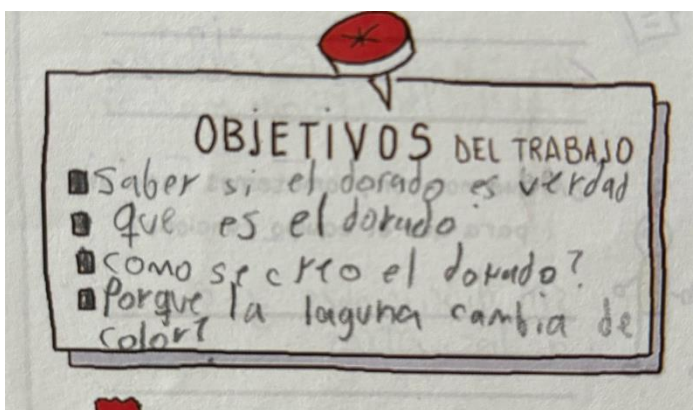 OBJETIVOS DEL TRABAJO
Saber si el dorado es verdad
que es el dorado
como se creo el dorado?
Porque la laguna cambia de
color?